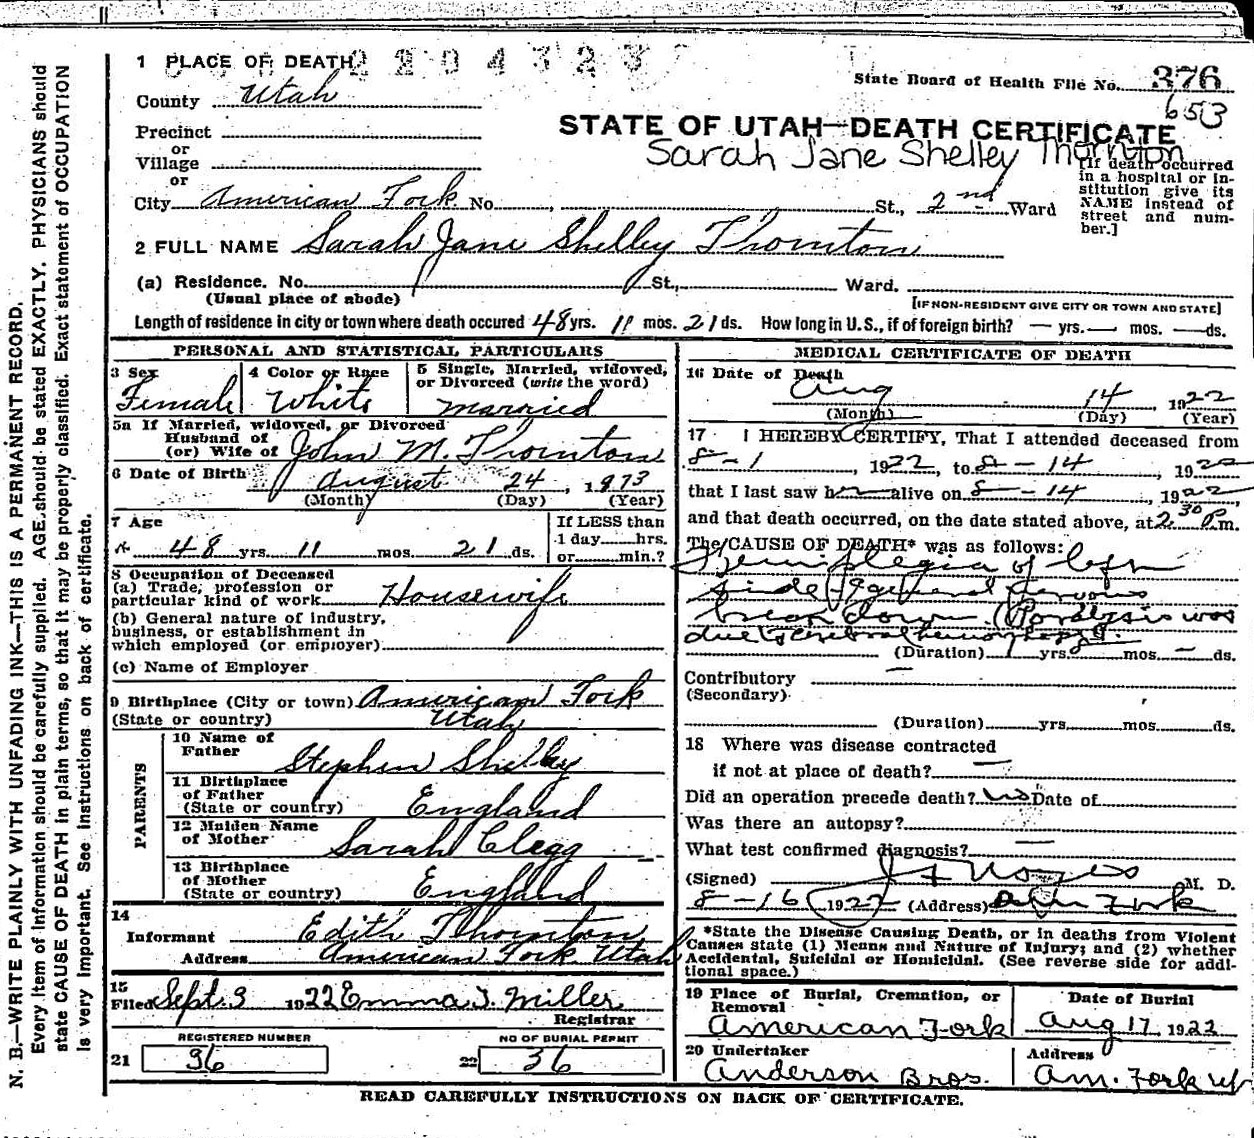 1 PLACE OF DEATH
County Utah
Precinct
or
Village
or
City American Fork No. , St., 2nd Ward
State Board of Health File No. 376
653
STATE OF UTAH—DEATH CERTIFICATE
Sarah Jane Shelley Thornton
[If death occurred in a hospital or institution give its NAME instead of street and number.]
2 FULL NAME Sarah Jane Shelley Thornton
(a) Residence. No. St., Ward.
(Usual place of abode) [IF NON-RESIDENT GIVE CITY OR TOWN AND STATE]
Length of residence in city or town where death occured 48 yrs. 11 mos. 21 ds. How long in U. S., if of foreign birth? — yrs. — mos. — ds.
PERSONAL AND STATISTICAL PARTICULARS
3 Sex
Female
4 Color or Race
White
5 Single, Married, widowed, or Divorced (write the word)
married
5a If Married, widowed, or Divorced
Husband of
(or) Wife of John M. Thornton
6 Date of Birth August 24, 1873
(Month) (Day) (Year)
7 Age
48 yrs. 11 mos. 21 ds.
If LESS than
1 day hrs.
or min.?
8 Occupation of Deceased
(a) Trade, profession or
particular kind of work Housewife
(b) General nature of industry,
business, or establishment in
which employed (or employer)
(c) Name of Employer
9 Birthplace (City or town) American Fork
(State or country) Utah
PARENTS
10 Name of
Father Stephen Shelley
11 Birthplace
of Father
(State or country) England
12 Maiden Name
of Mother Sarah Clegg
13 Birthplace
of Mother
(State or country) England
14
Informant Edith Thornton
Address American Fork Utah
15
Filed Sept. 3 1922 Emma J. Miller
Registrar
REGISTERED NUMBER
21 36
NO OF BURIAL PERMIT
22 36
MEDICAL CERTIFICATE OF DEATH
16 Date of Death
Aug 14 1922
(Month) (Day) (Year)
17 I HEREBY CERTIFY, That I attended deceased from
8-1, 1922, to 8-14, 1922
that I last saw her alive on 8-14, 1922
and that death occurred, on the date stated above, at 2.30 P.m.
The CAUSE OF DEATH* was as follows:
Hemiplegia of left
side & general nervous
break down. (Paralysis was
due to cerebral hemorrhage.
(Duration) 1 yrs. 8 mos. — ds.
Contributory —
(Secondary)
(Duration) yrs. mos. ds.
18 Where was disease contracted
if not at place of death? —
Did an operation precede death? no Date of
Was there an autopsy?
What test confirmed diagnosis? —
(Signed) M. D.
8-16 1922 (Address) Am Fork
*State the Disease Causing Death, or in deaths from Violent
Causes state (1) Means and Nature of Injury; and (2) whether
Accidental, Suicidal or Homicidal. (See reverse side for addi-
tional space.)
19 Place of Burial, Cremation, or
Removal
American Fork
Date of Burial
Aug 17, 1922
20 Undertaker
Anderson Bros.
Address
Am. Fork Ut
READ CAREFULLY INSTRUCTIONS ON BACK OF CERTIFICATE.
N. B.—WRITE PLAINLY WITH UNFADING INK—THIS IS A PERMANENT RECORD.
Every item of information should be carefully supplied. AGE should be stated EXACTLY. PHYSICIANS should
state CAUSE OF DEATH in plain terms, so that it may be properly classified. Exact statement of OCCUPATION
is very important. See instructions on back of certificate.